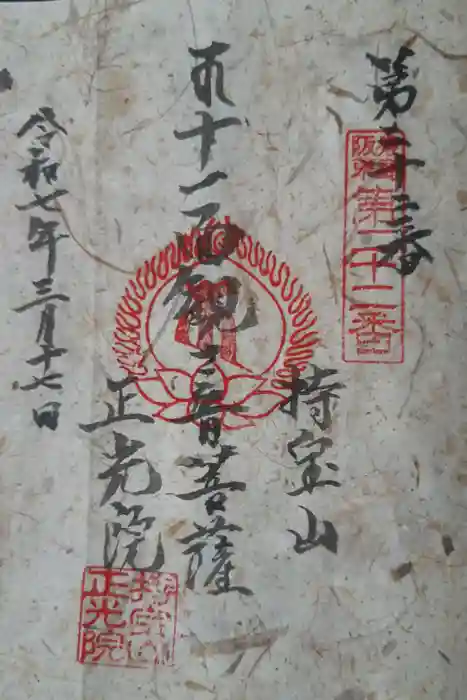 第二十二番
第二十二番
持宝山
十一面観音菩薩
正光院
持宝山
正光院
令和七年三月十七日